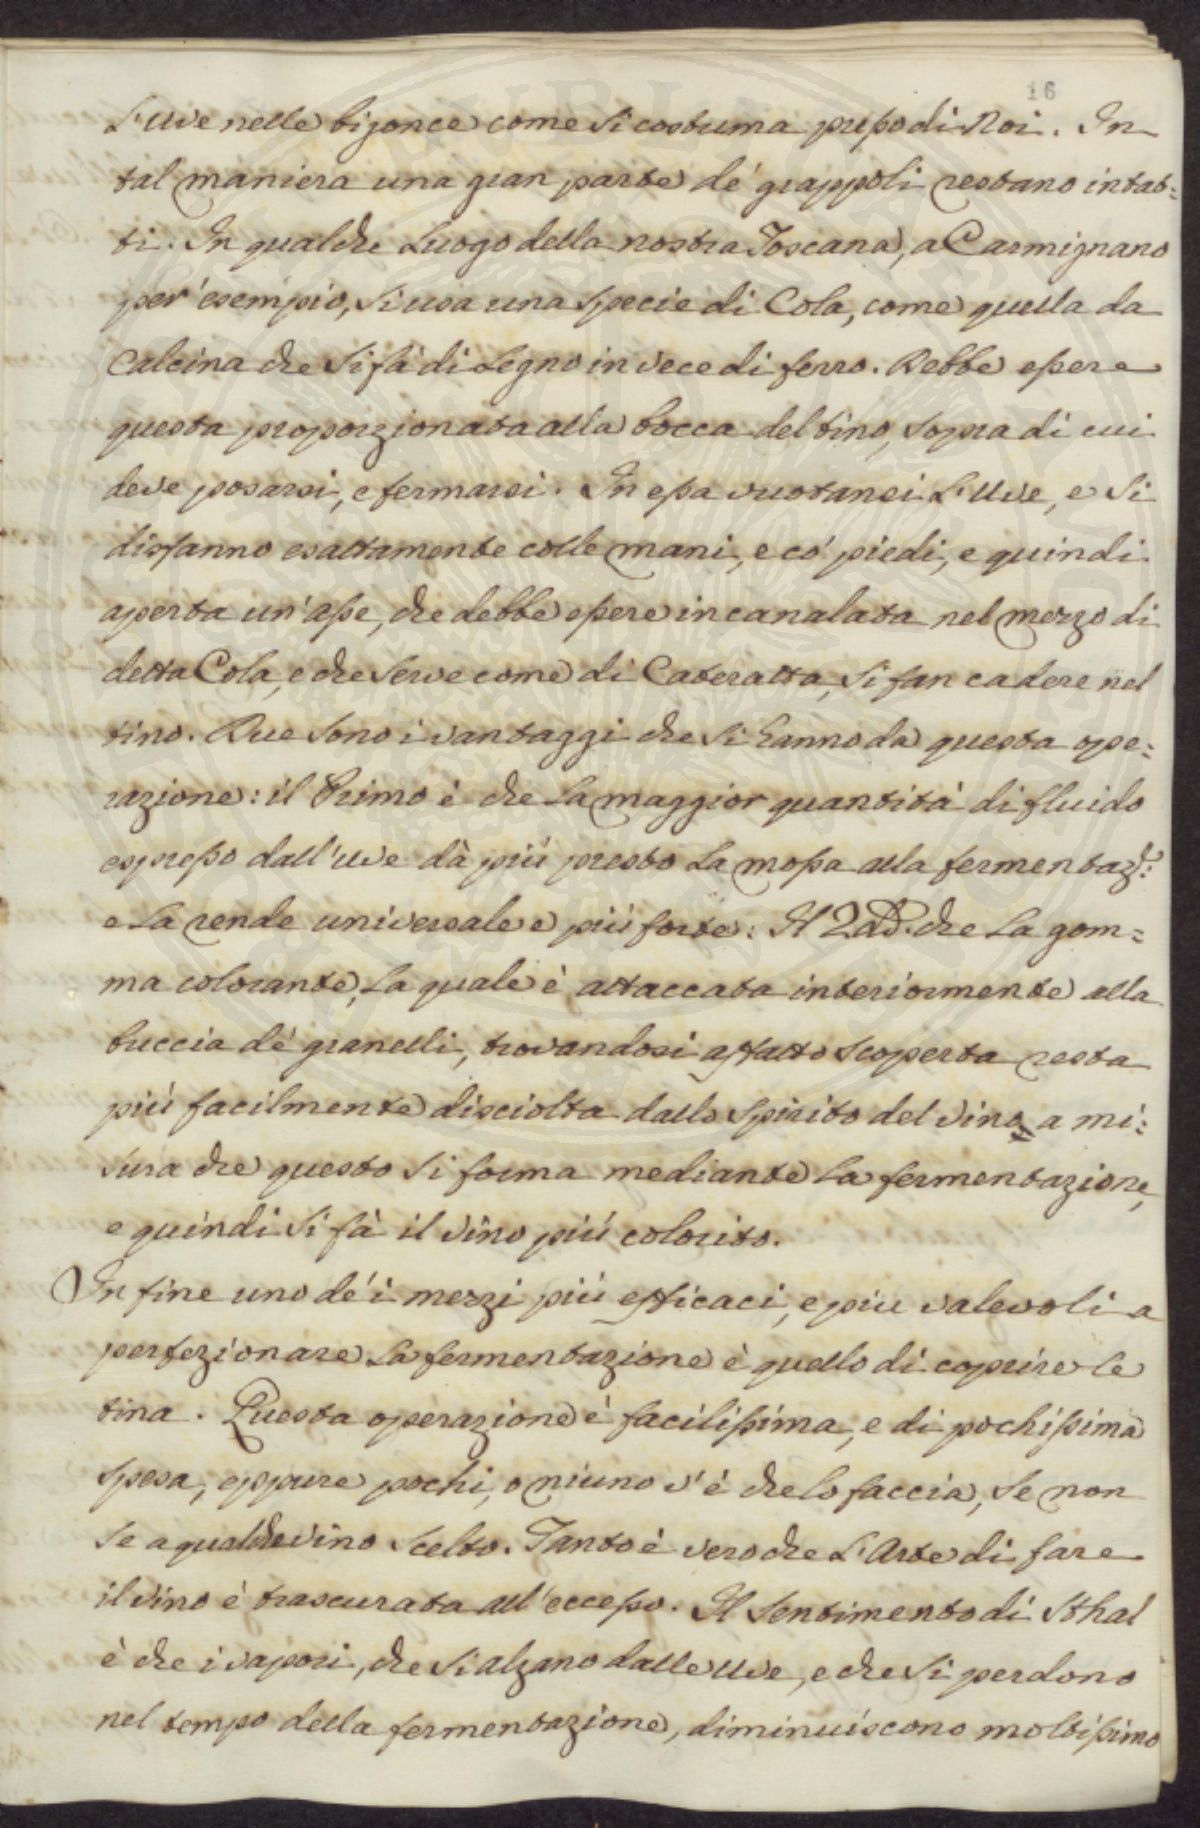 16
L'Uve nelle bigonce come si costuma presso di Noi. In
tal maniera una gran parte de' grappoli restano intat=
ti. In qualche Luogo della nostra Toscana, a Carmignano
per' esempio, si usa una specie di Cola, come quella da
Calcina che si fà di Legno in vece di ferro. Debbe essere
questa proporzionata alla bocca del tino, sopra di cui
deve posarsi, e fermarsi. In essa vuotansi L'Uve, e si
disfanno esattamente colle mani, e co' piedi, e quindi
aperta un'asse, che debbe essere incanalata nel mezzo di
detta Cola, e che serve come di Cateratta, si fan cadere nel
tino. Due sono i vantaggi che si hanno da questa ope=
razione: il Primo è che La maggior quantità di fluido
espresso dall'uve dà più presto La mossa alla fermentaz.e
e La rende universale e più forte: Il 2.do che La gom=
ma colorante, La quale è attaccata interiormente alla
buccia de' granelli, trovandosi affatto scoperta resta
più facilmente disciolta dallo spirito del vino a mi=
sura che questo si forma mediante La fermentazione,
e quindi si fà il vino più colorito.
In fine uno de' i mezzi più efficaci, e piu valevoli a
perfezionare La fermentazione è quello di coprire le
tina. Questa operazione è facilissima, e di pochissima
spesa, eppure pochi, o niuno v'è che lo faccia, se non
se a qualche vino scelto. Tanto è vero che L'Arte di fare
il vino è trascurata all'eccesso. Il sentimento di Sthal
è che i vapori, che si alzano dalle uve, e che si perdono
nel tempo della fermentazione, diminuiscono moltissimo